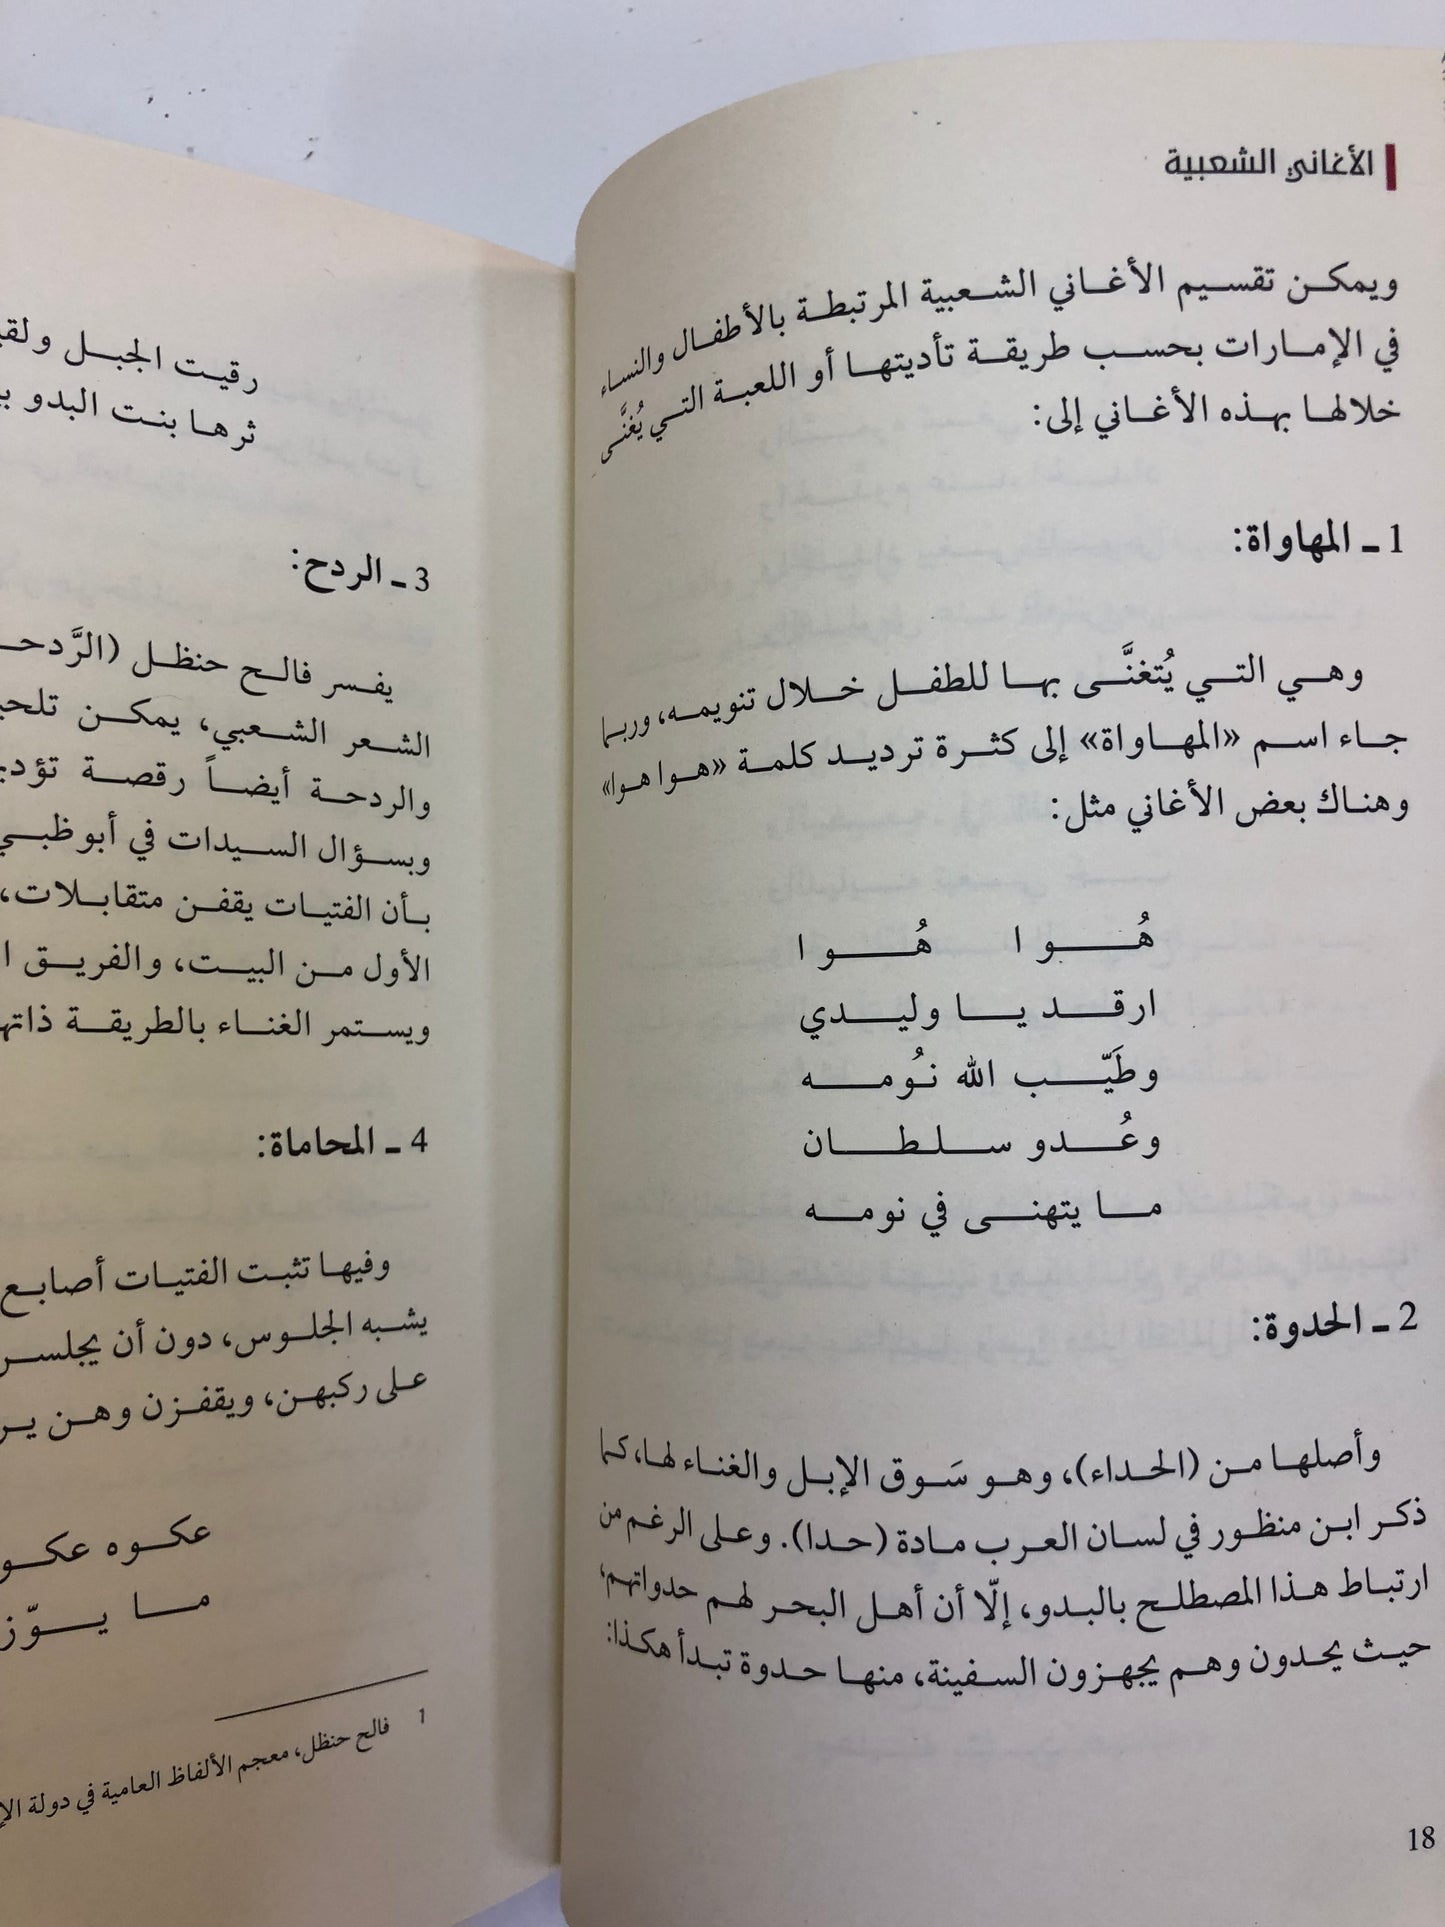 الأغاني الشعبية
ويمكن تقسيم الأغاني الشعبية المرتبطة بالأطفال والنساء
في الإمارات بحسب طريقة تأديتها أو اللعبة التي يُغنَّى
خلالها بهذه الأغاني إلى:
1 ـ المهاواة:
وهي التي يُتغنَّى بها للطفل خلال تنويمه، وربما
جاء اسم «المهاواة» إلى كثرة ترديد كلمة «هوا هوا»
وهناك بعض الأغاني مثل:
هُوا هُوا
ارقد يا وليدي
وطَيّب الله نُومه
وعُدو سلطان
ما يتهنى في نومه
2 ـ الحدوة:
وأصلها من (الحداء)، وهو سَوق الإبل والغناء لها، كما
ذكر ابن منظور في لسان العرب مادة (حدا). وعلى الرغم من
ارتباط هذا المصطلح بالبدو، إلّا أن أهل البحر لهم حدواتهم،
حيث يحدون وهم يجهزون السفينة، منها حدوة تبدأ هكذا:
18
رقيت الجبل
ثرها بنت البدو
3 ـ الردح:
يفسر فالح حنظل
الشعر الشعبي، يمكن
والردحة أيضاً رقصة
وبسؤال السيدات في أبوظبي
بأن الفتيات يقفن متقابلات،
الأول من البيت، والفريق
ويستمر الغناء بالطريقة
4 ـ المحاماة:
وفيها تثبت الفتيات أصابع
يشبه الجلوس، دون أن
على ركبهن، ويقفزن وهن
عكوه
ما
1 فالح حنظل، معجم الألفاظ العامية في دولة